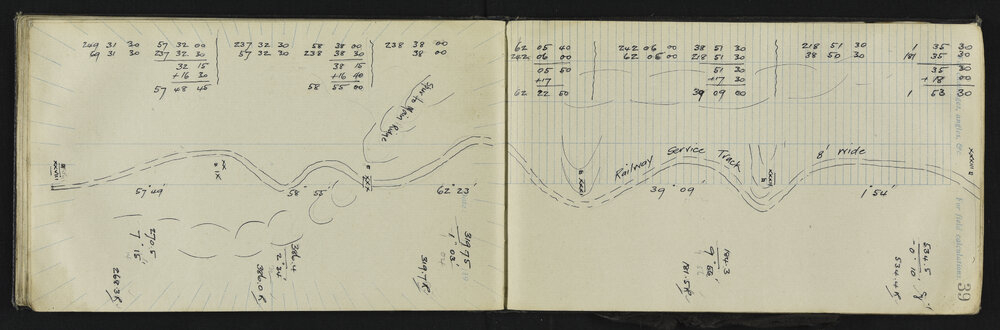 249 31 30
69 31 30
57 32 00
237 32 30
32 15
+16 30
57 48 45
237 32 30
57 32 30
58 38 00
238 38 30
38 15
+16 40
58 55 00
238 38 00
38 00
Spur to Main Ridge
57° 49'
XXIX
58° 55'
XXX
62° 23'
270.5
7° 15'
268.3 R
366.4
2° 34'
366.0 R
319.75
1° 03'
319.7 R
62 05 40
242 06 00
05 50
+17
62 22 50
242 06 00
62 06 00
38 51 30
218 51 30
51 30
+17 30
39 09 00
218 51 30
38 50 30
1 35 30
181 35 30
35 30
+18 00
1 53 30
XXXI
Railway Service Track 8' wide
39° 09'
XXXII
1° 54'
XXXIII
184.3
181.5 R
534.5
-0° 10'
534.4 R
For field calculations
39